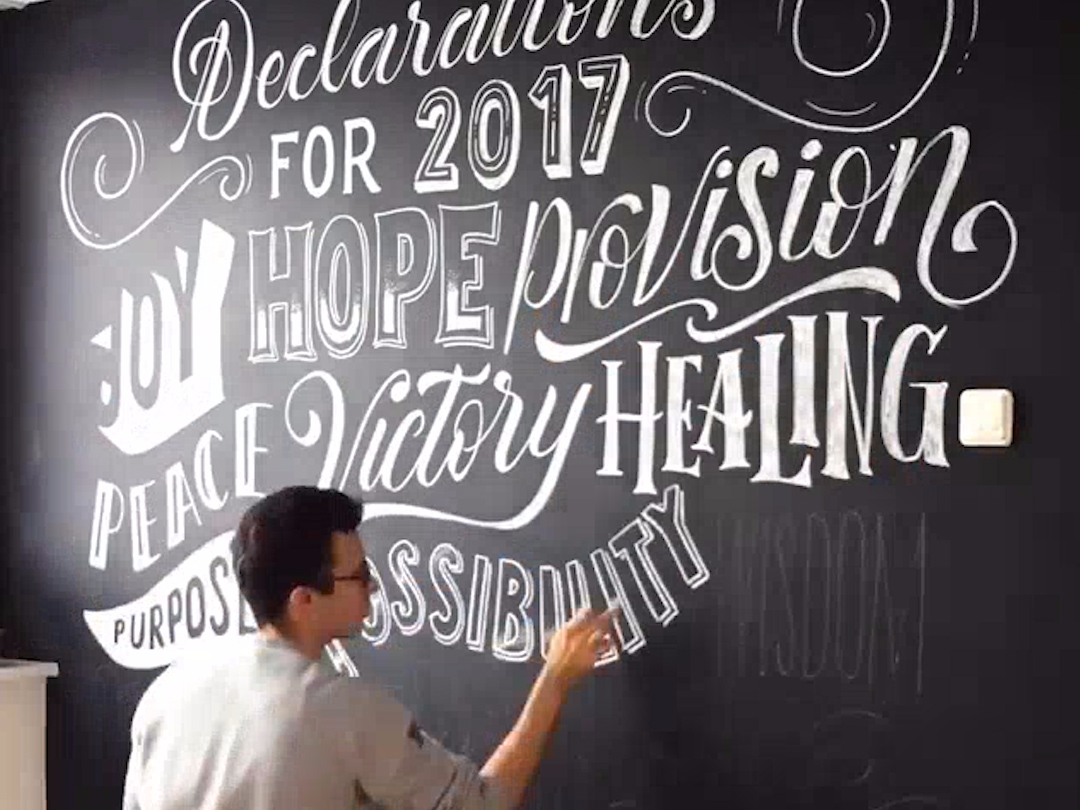 Declarations
FOR 2017
JOY HOPE Provision
PEACE Victory HEALING
PURPOSE POSSIBILITY
WISDOM